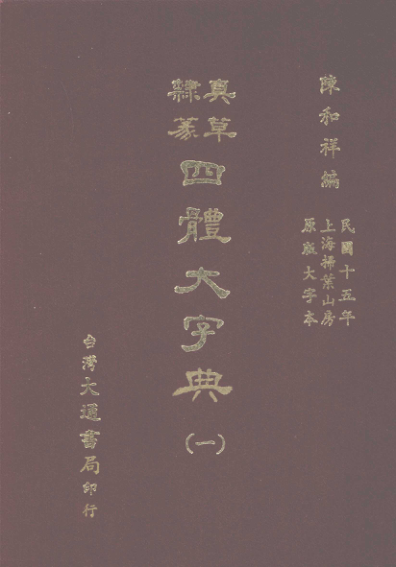 陳和祥編
民國十五年
上海掃葉山房
原版大字本
真草
隸篆
四體大字典
(一)
台灣大通書局印行